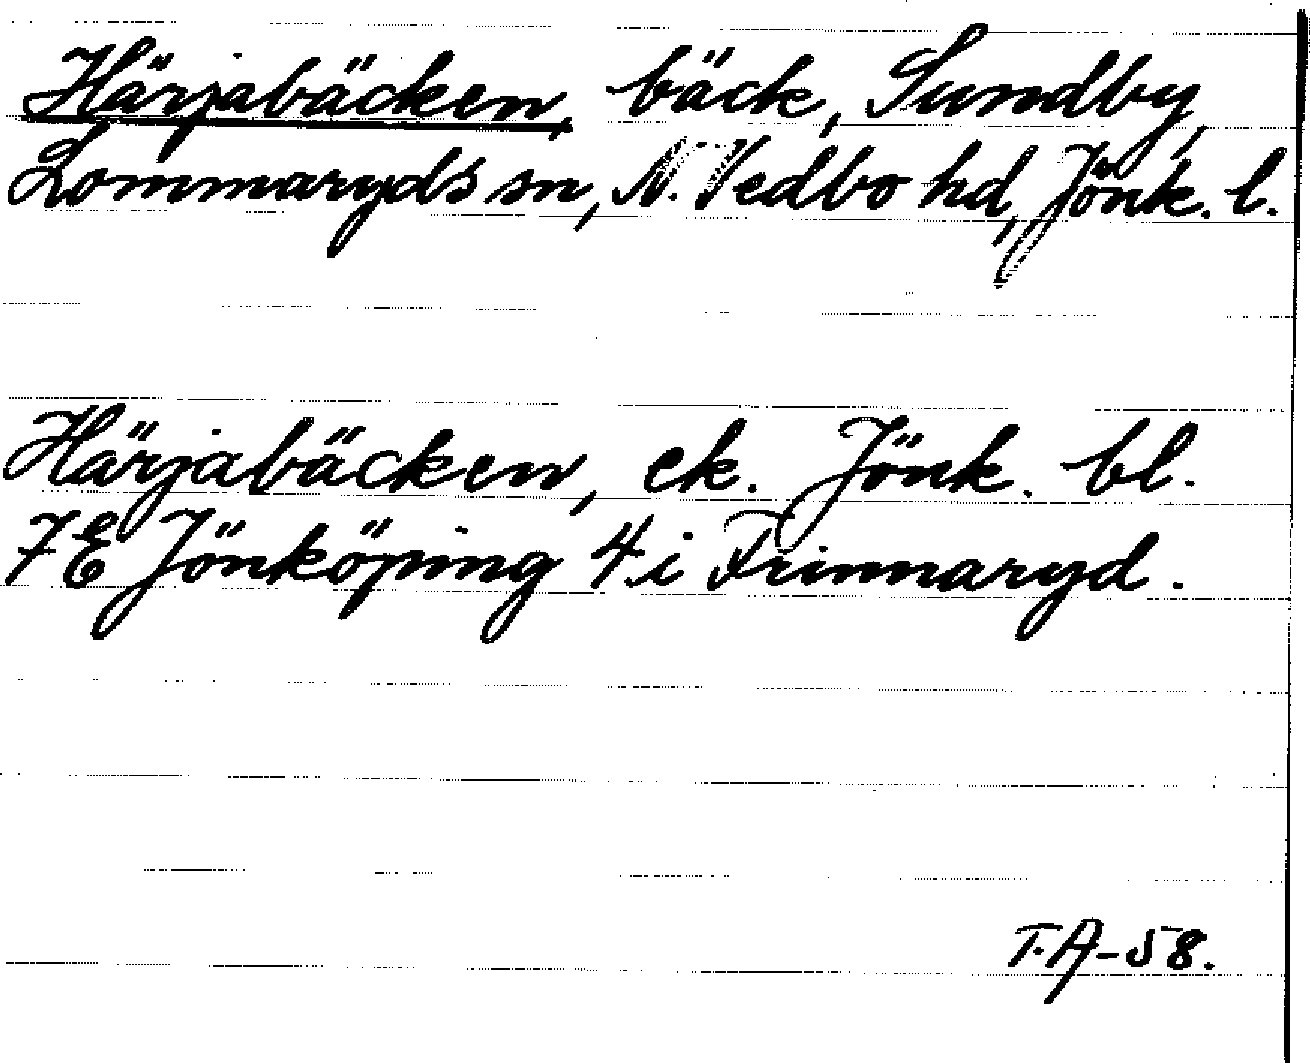 Härjabäcken, bäck, Sundby,
Lommaryds sn, N. Vedbo hd, Jönk. l.
Härjabäcken, ek. Jönk. bl.
7E Jönköping 4 i Frinnaryd.
T.A-58.